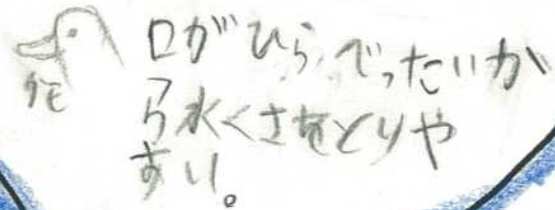 口がひらべったいか
ら水くさをとりや
すい。
かも